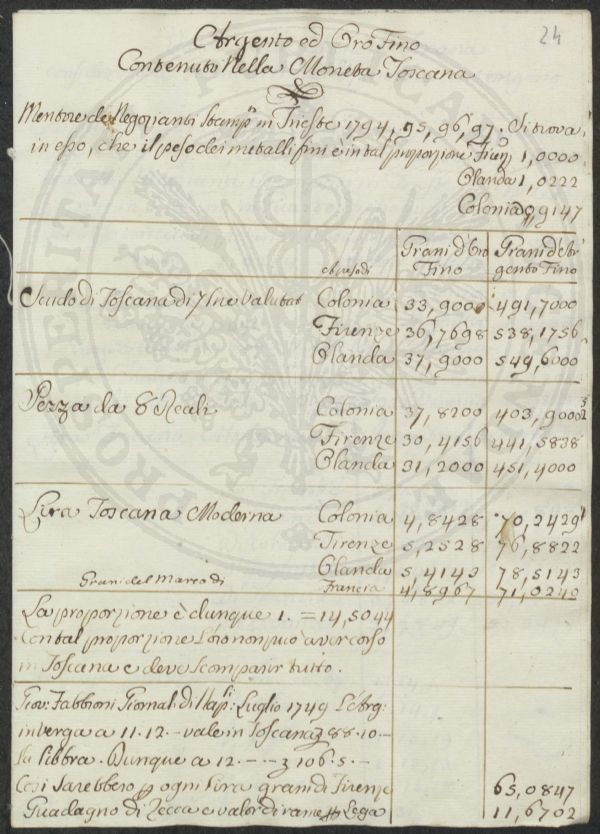 24
Argento ed Oro Fino
Contenuto Nella Moneta Toscana
Mentore de Negozianti Stamp.º in Trieste 1794, 95, 96, 97. Si trova,
in esso, che il peso dei metalli fini è in tal proporzione Firen. 1,0000
Olanda 1,0222
Colonia 0,9147
al peso di Grani d'Oro Fino Grani d'Argento Fino
Scudo di Toscana di 7 lire valutat Colonia 33,9000 491,7000
Firenze 36,7698 538,1756
Olanda 37,9000 549,6000
Pezza da 8 Reali Colonia 37,8200 403,9000
Firenze 30,4156 441,5838
Olanda 31,2000 451,4000
Lira Toscana Moderna Colonia 4,8428 70,2429
Firenze 5,2528 76,8822
Olanda 5,4143 78,5143
Grani del Marco di Francia 4,8967 71,0240
La proporzione è dunque 1. = 14,5044
Con tal proporzione l'oro non può aver corso
in Toscana e deve scomparir tutto.
Giov: Fabbroni Giornal: di Nap: Luglio 1749 L'Arg:
in verga a 11.12 - vale in Toscana 88.10 -
la libbra. Dunque a 12 - 106.5 -
Così sarebbero ogni Lira grani di Firenze 65,0847
Guadagno di Zecca e valor di rame Lega 11,6702